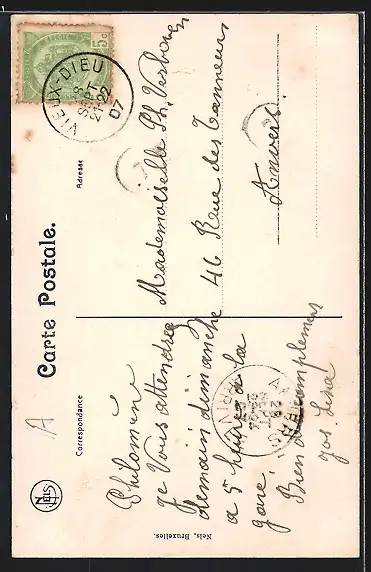 Carte Postale.
Correspondance
Adresse
5c
VIEUX-DIEU
28 SEPT
21-22
07
Philomène
je Vous attendrai
demain dimanche
a 5 heures a la
gare.
Bien des complemens
Jos. Lisa
Mademoiselle Ph. Verboven
46 Rue des Tanneurs
Anvers.
A
NELS
Nels, Bruxelles.